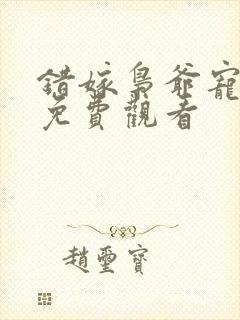 錯嫁梟爺寵
免費觀看
趙璽寶